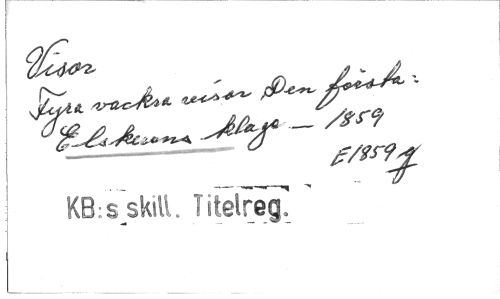 Visor
Fyra vackra visor Den första:
Elskerens klaga — 1859
E1859g
KB:s skill. Titelreg.